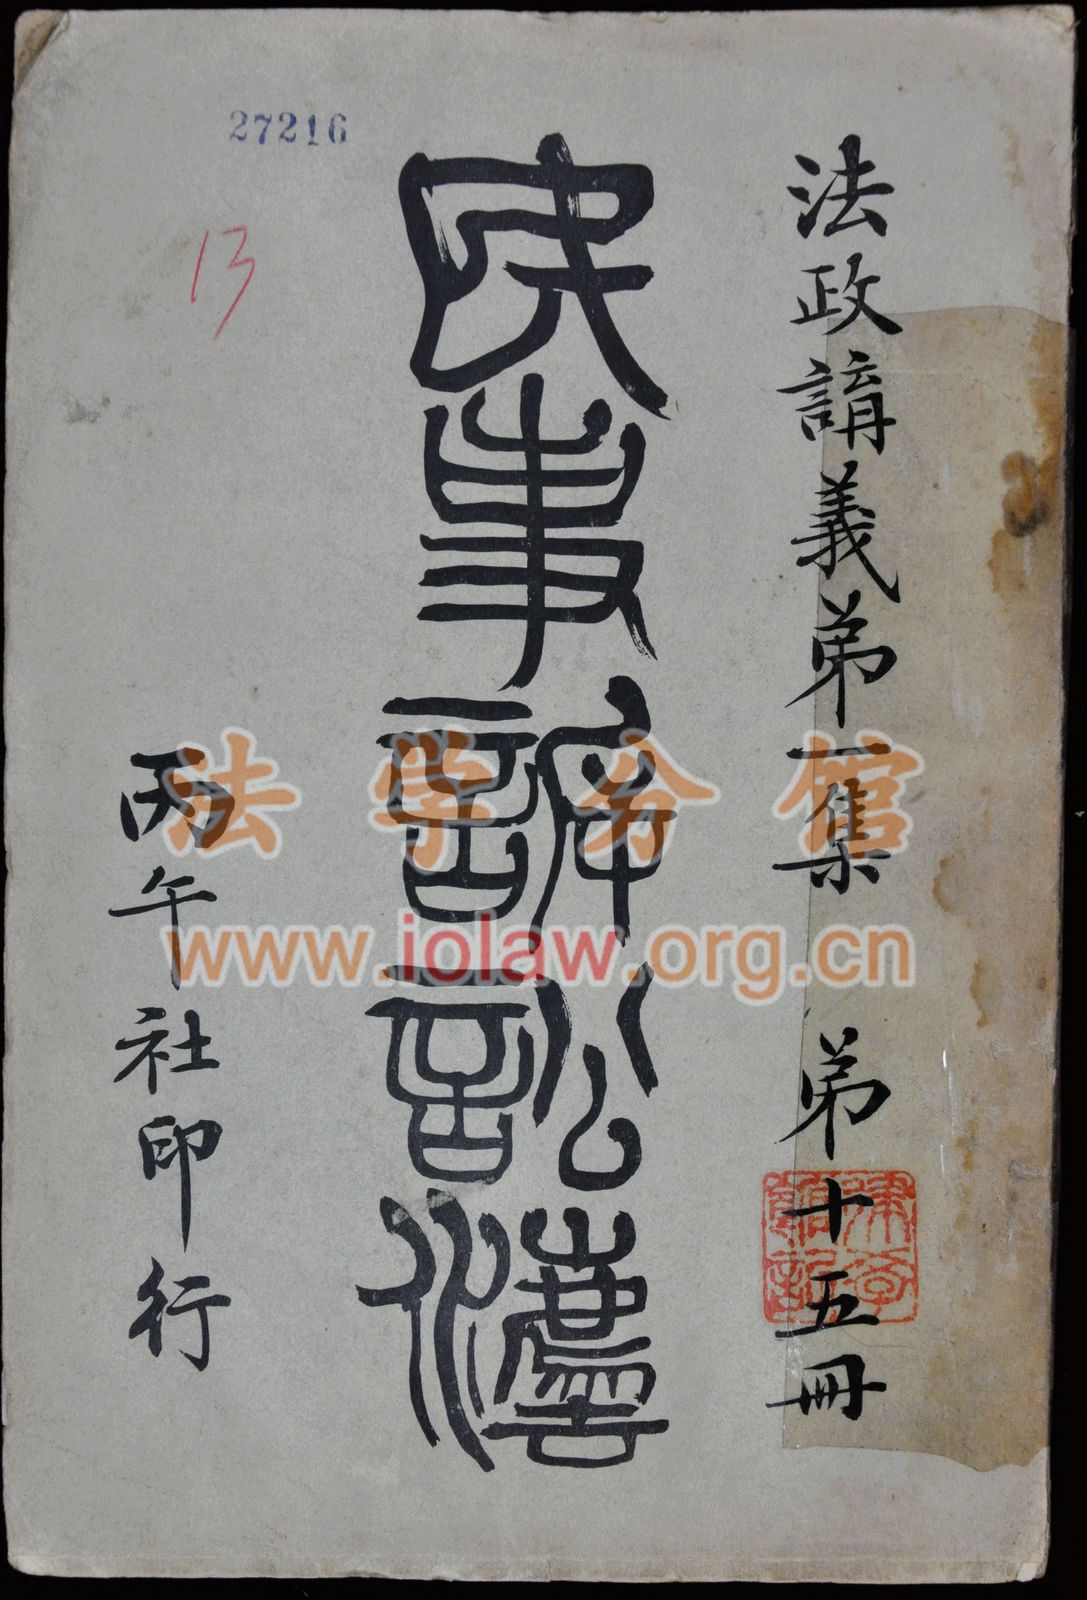 法政講義弟一集 弟十五冊
民事訴訟灋
丙午社印行
27216
13
法学分馆
www.iolaw.org.cn